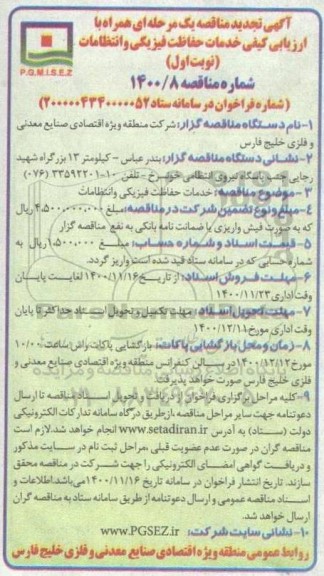 آگهی تجدید مناقصه یک مرحله ای همراه با
ارزیابی کیفی خدمات حفاظت فیزیکی و انتظامات
(نوبت اول)
P.G.M.I.S.E.Z
شماره مناقصه ۱۴۰۰/۸
(شماره فراخوان در سامانه ستاد ۲۰۰۰۰۰۴۳۴۰۰۰۰۰۵۲)
۱- نام دستگاه مناقصه گزار: شرکت منطقه ویژه اقتصادی صنایع معدنی
و فلزی خلیج فارس
۲- نشانی دستگاه مناقصه گزار: بندرعباس - کیلومتر ۱۳ بزرگراه شهید
رجایی جنب پاسگاه نیروی انتظامی خونسرخ - تلفن ۱۰-۳۳۵۹۲۲۰۱ (۰۷۶)
۳- موضوع مناقصه: خدمات حفاظت فیزیکی وانتظامات
۴- مبلغ ونوع تضمین شرکت در مناقصه: مبلغ ۴,۵۰۰,۰۰۰,۰۰۰ ریال
که به صورت فیش واریزی یا ضمانت نامه بانکی به نفع مناقصه گزار
۵- قیمت اسناد و شماره حساب: مبلغ ۱,۵۰۰,۰۰۰ ریال به
شماره حسابی که در سامانه ستاد قید شده است واریز گردد.
۶- مهلت فروش اسناد: از تاریخ ۱۴۰۰/۱۱/۱۶ لغایت پایان
وقت اداری ۱۴۰۰/۱۱/۲۳
۷- مهلت تحویل اسناد: مهلت تکمیل و تحویل اسناد حداکثر تا پایان
وقت اداری مورخ ۱۴۰۰/۱۲/۱۱
۸- زمان و محل بازگشایی پاکات: بازگشایی پاکات راس ساعت ۱۰/۰۰
مورخ ۱۴۰۰/۱۲/۱۲ در سالن کنفرانس منطقه ویژه اقتصادی صنایع معدنی و
فلزی خلیج فارس صورت خواهد پذیرفت.
۹- کلیه مراحل برگزاری فراخوان از دریافت و تحویل اسناد مناقصه تا ارسال
دعوتنامه جهت سایر مراحل مناقصه، ازطریق درگاه سامانه تدارکات الکترونیکی
دولت (ستاد) به آدرس www.setadiran.ir انجام خواهد شد. لازم است
مناقصه گران در صورت عدم عضویت قبلی ،مراحل ثبت نام در سایت مذکور
و دریافت گواهی امضای الکترونیکی را جهت شرکت در مناقصه محقق
سازند. تاریخ انتشار فراخوان در سامانه تاریخ ۱۴۰۰/۱۱/۱۶ می باشد. اطلاعات و
اسناد مناقصه عمومی و ارسال دعوتنامه از طریق سامانه ستاد به مناقصه گران
ارسال خواهد شد.
۱۰- نشانی سایت شرکت: www.PGSEZ.ir
روابط عمومی منطقه ویژه اقتصادی صنایع معدنی و فلزی خلیج فارس